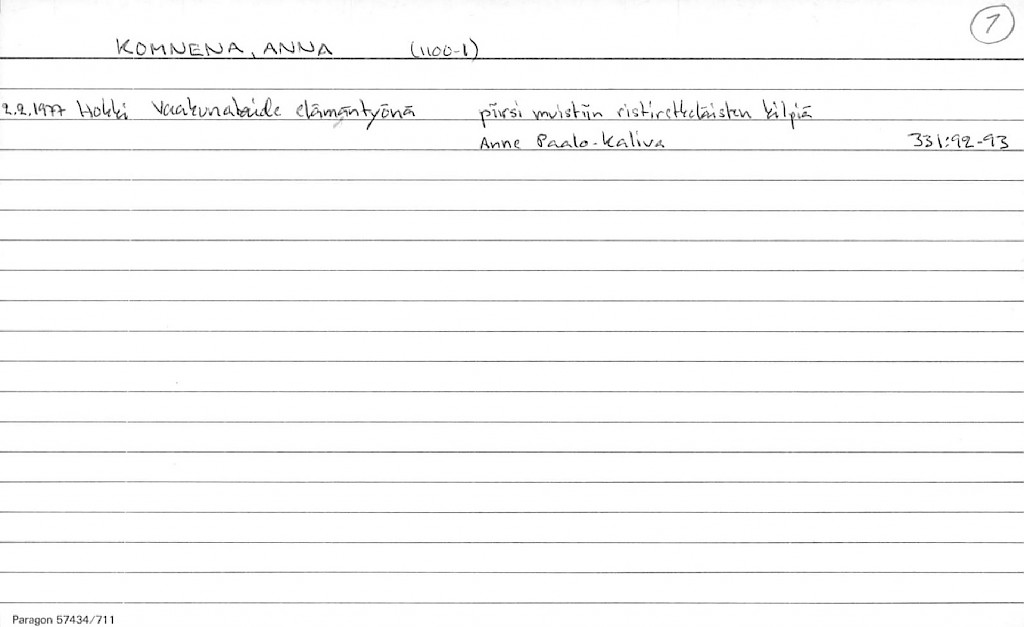 1
KOMNENA, ANNA (1100-l)
2.2.1977 Hokki Vaakunataide elämäntyönä piirsi muistiin ristiretkeläisten kilpiä
Anne Paalo-Kaliva 331:92-93
Paragon 57434/711